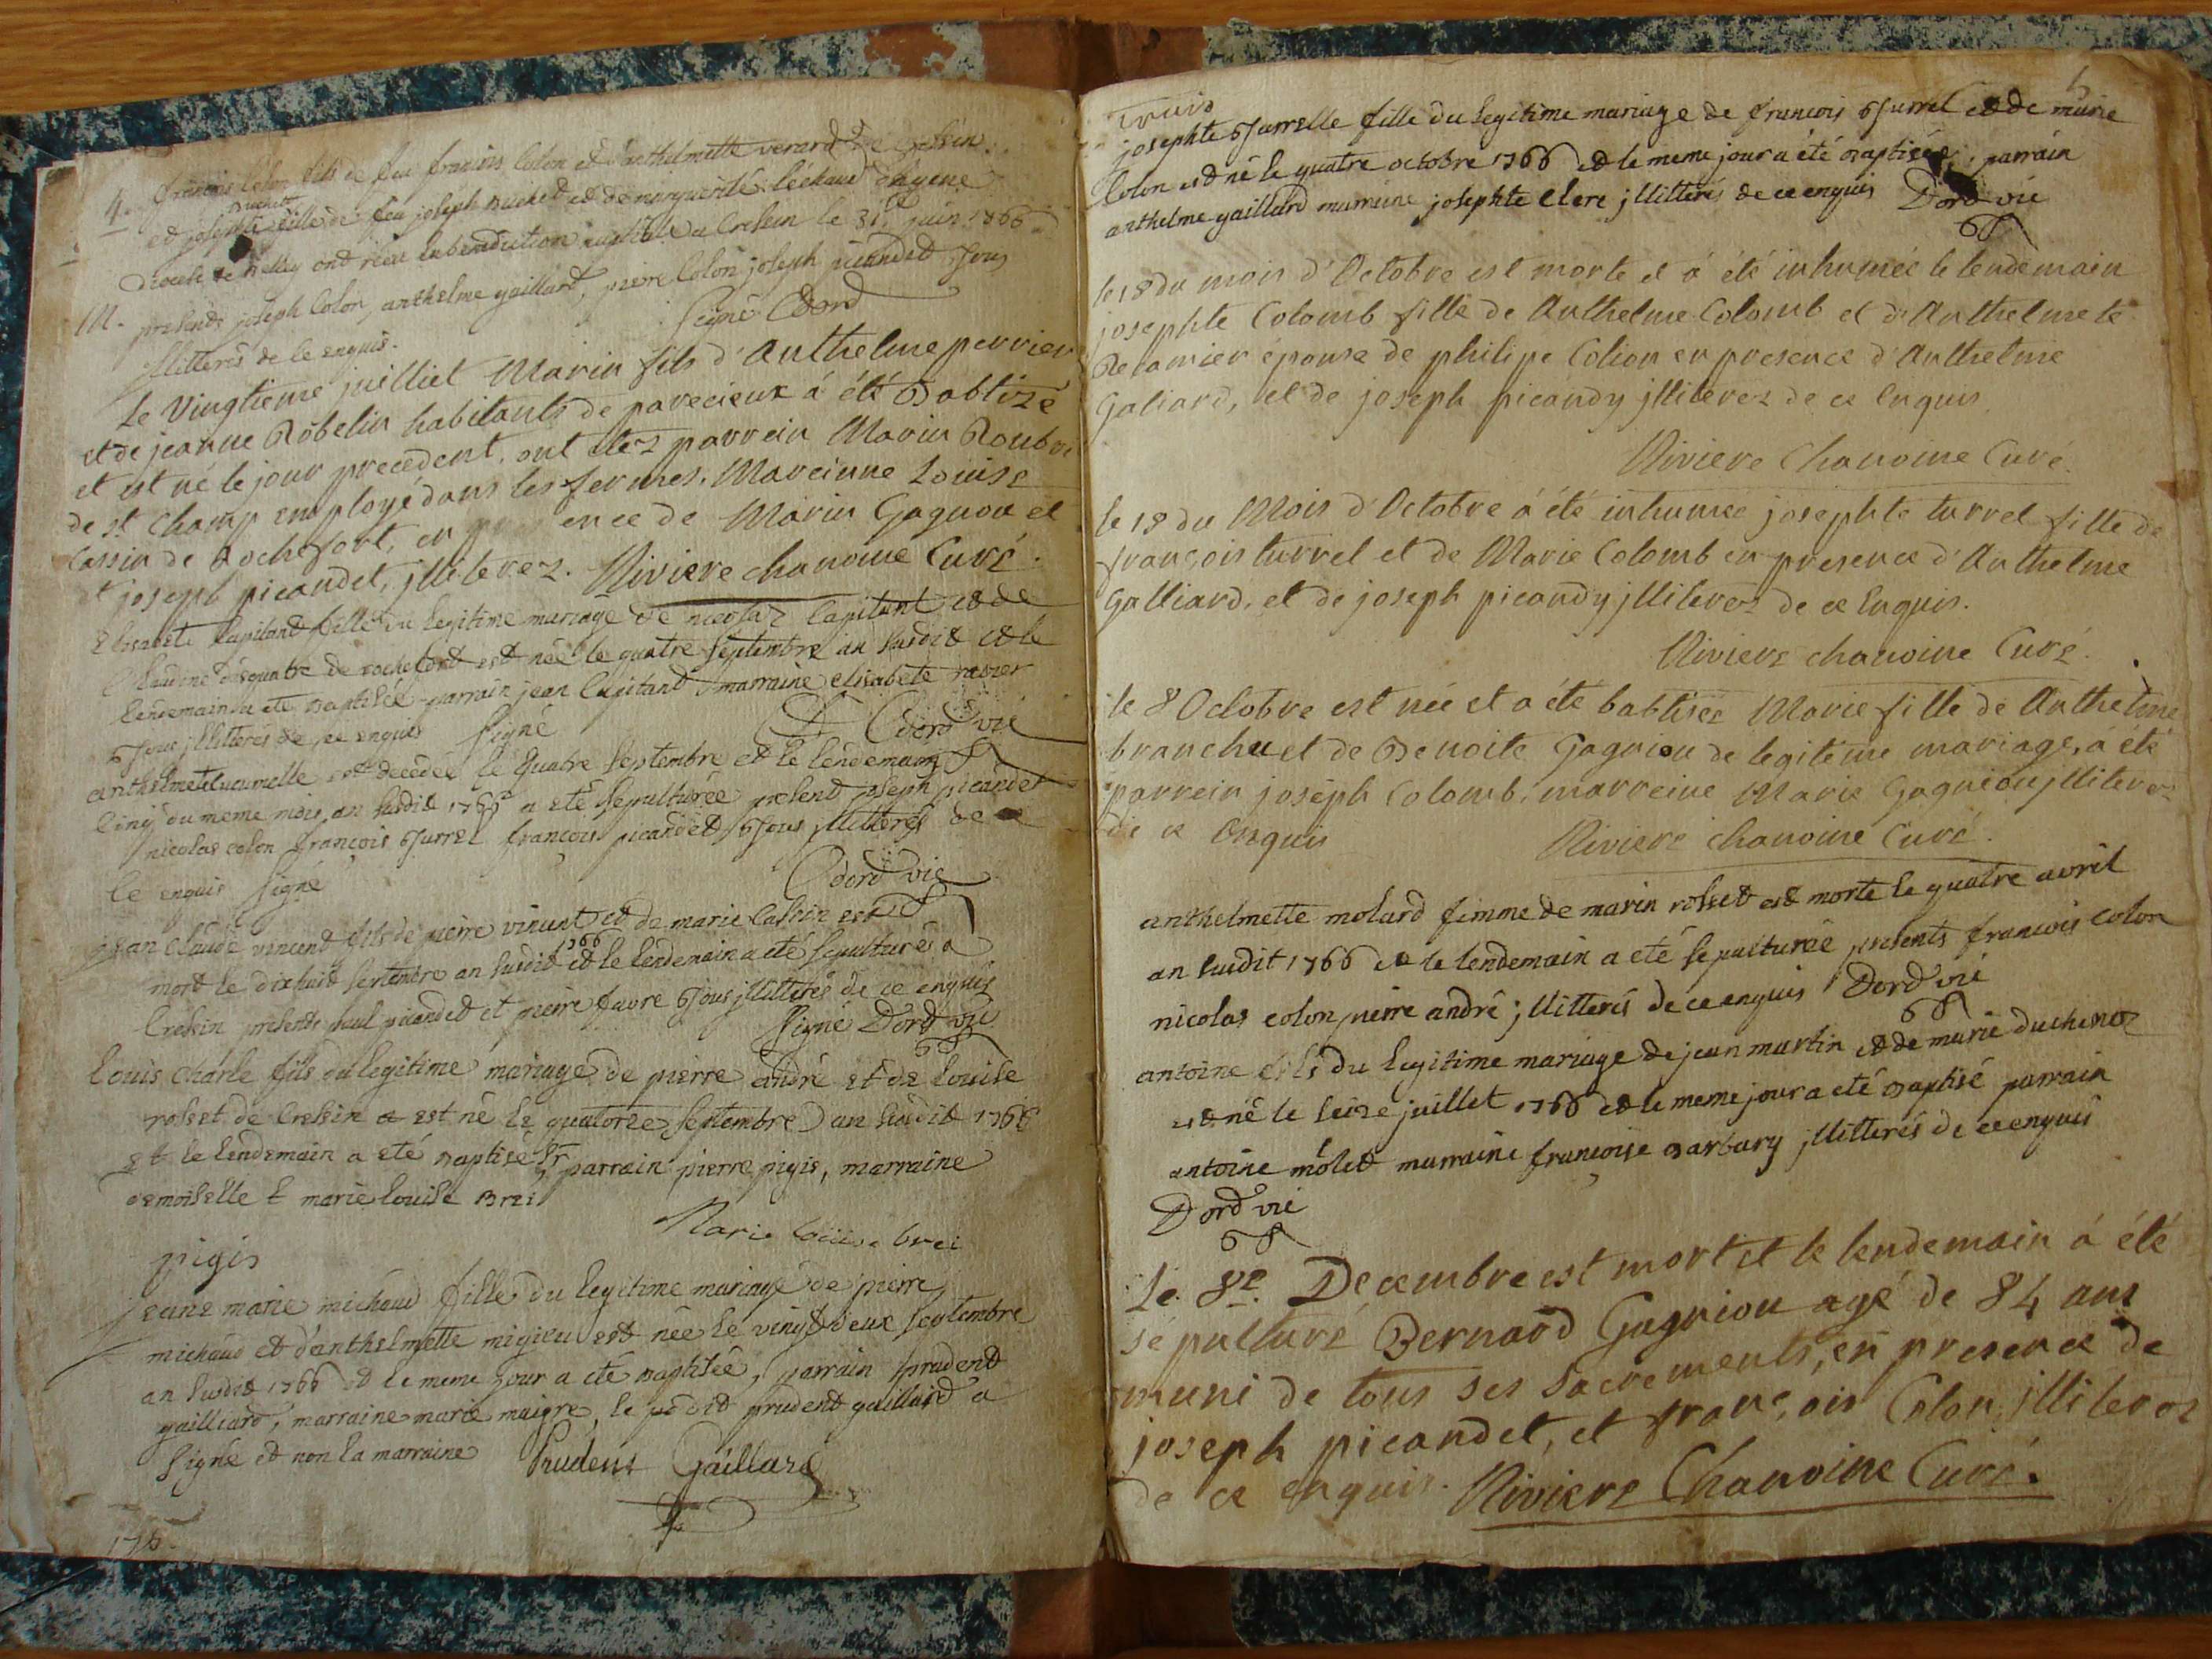 4. françois Colon fils de feu françois Colon et d'anthelmette verard de Cressin
Buchet
et josephte fille de feu joseph Buchet et de marguerite
Diocese de Belley ont réçu la benediction nuptiale a Cressin le 31 juin 1766
M. presents joseph Colon, anthelme gaillard, pierre Colon joseph picandet Tous
jllitterés de ce enquis. signé Dord
Le Vingtieme juilliet Marin fils d'Anthelme perrier
et de jeanne Robelin habitants de parecieux á été Babtizé
et est né le jour precedent, ont étez parrein Marin
de st Champ employé dans les fermes. Mareinne Louise
Cassin de Rochefort, en presence de Marin Gagnou et
et joseph picandet, jlliterez. Riviere chanoine Curé.
Elisabete Capitand fille du legitime mariage de nicolas Capitant et de
de rochefort est née le quatre septembre an susdit et le
lendemain a été Baptisée parrain jean Capitand marraine elisabete ravier
Tous jllitterés de ce enquis signé Dord vic
anthelmette est decedée le quatre septembre et le lendemain
cinq du meme mois, an susdit 1766 a eté sepulturée present joseph picandet
nicolas colon françois Turrel françois picandet Tous jllitterés de ce
ce enquis signé Dord vic
jean Claude vincent fils de pierre vincent et de marie Cassin est
mort le dixhuit septembre an susdit 1766 et le lendemain a eté sepulturé a
Cressin presents paul picandet et pierre favre Tous jllitterés de ce enquis
signé Dord vic
Louis Charle fils du legitime mariage de pierre andré et de Louise
rosset de Cressin est né le quatorze septembre an susdit 1766
et le lendemain a eté Baptisé parrain pierre pigis, marraine
demoiselle marie louise Brei
Marie Louise brei
pigis
jeane marie michaud fille du legitime mariage de pierre
michaud et d'anthelmette migieu est née le vingt deux septembre
an susdit 1766 et le meme jour a eté Baptisée, parrain prudent
gailliard, marraine marie maigre, le pdit prudent gaillard a
signé et non la marraine Prudent Gaillard
5
josephte Turrelle fille du legitime mariage de francois Turrel et de marie
Colon est né le quatre octobre 1766 et le meme jour a été Baptisée, parrain
anthelme gaillard marraine josephte Clerc jllitterés de ce enquis Dord vic
le 18 du mois d'Octobre est morte et á été inhumée le lendemain
josephte Colomb fille de Anthelme Colomb et d'Anthelmete
épouse de philipe Colion en presence d'Anthelme
Galiard, et de joseph picandy jlliterez de ce Enquis
Riviere Chanoine Curé.
le 18 du Mois d'Octobre á été inhumée josephte turrel fille de
françois turrel et de Marie Colomb en presence d'Anthelme
Galliard, et de joseph picandy jlliterez de ce Enquis.
Riviere chanoine Curé.
le 8 Octobre est née et a été babtisée Marie fille de Anthelme
branchu et de Benoite Gagniou de legitime mariage, á été
parrein joseph Colomb, marreine Marie Gagniou jlliterez
de ce Enquis Riviere chanoine Curé.
anthelmette molard femme de marin rosset est morte le quatre avril
an susdit 1766 et le lendemain a eté sepulturée presents francois colon
nicolas colon pierre andré jllitterés de ce enquis Dord vic
antoine fils du legitime mariage de jean martin et de marie duchenoz
est né le seize juillet 1766 et le meme jour a eté Baptisé parrain
antoine molet marraine françoise Barbary jllitterés de ce enquis
Dord vic
Le 8e. Decembre est mort et le lendemain á été
sépulturé Bernard Gagniou agé de 84 ans
muni de tous ses Sacrements, en presence de
joseph picandet, et françois Colon jlliterez
de ce enquis. Riviere Chanoine Curé.